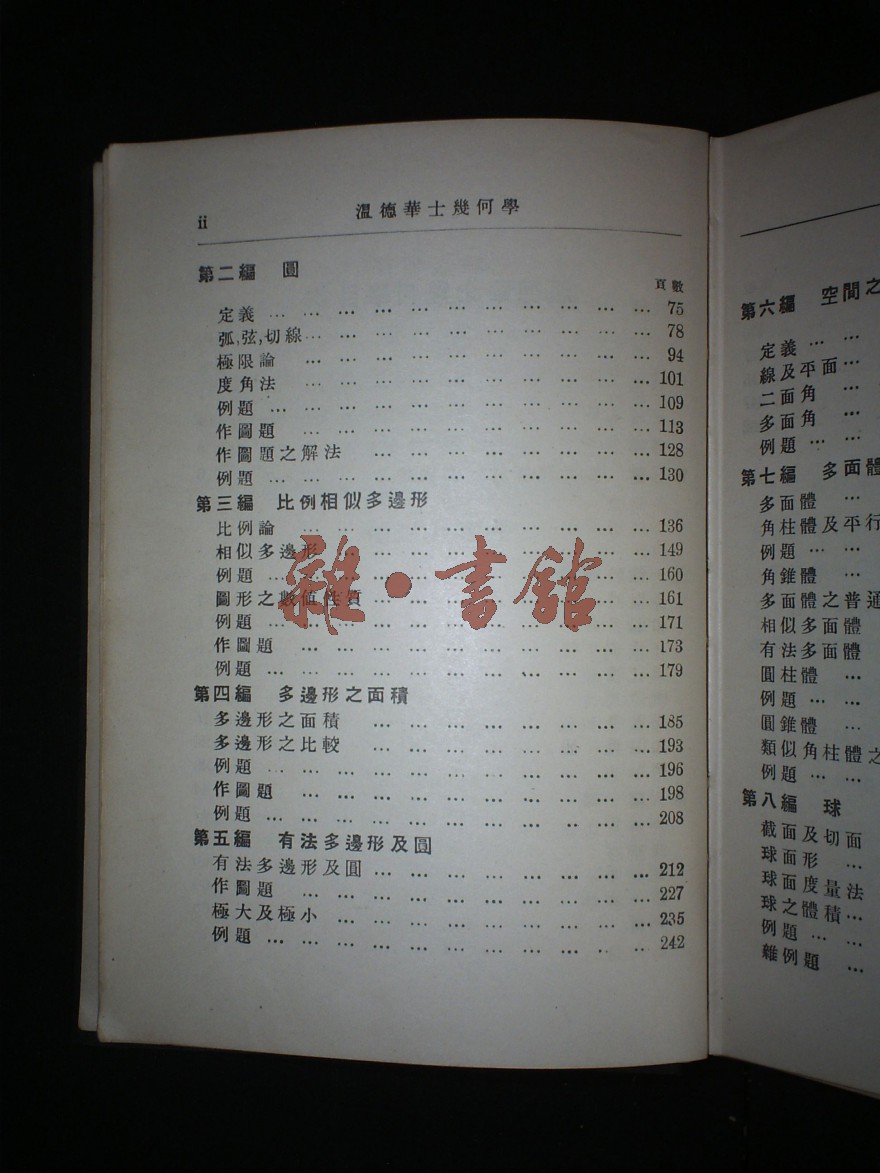 ii 溫德華士幾何學
第二編 圓
頁數
定義 … 75
弧,弦,切線 … 78
極限論 … 94
度角法 … 101
例題 … 109
作圖題 … 113
作圖題之解法 … 128
例題 … 130
第三編 比例相似多邊形
比例論 … 136
相似多邊形 … 149
例題 … 160
圖形之數值性質 … 161
例題 … 171
作圖題 … 173
例題 … 179
第四編 多邊形之面積
多邊形之面積 … 185
多邊形之比較 … 193
例題 … 196
作圖題 … 198
例題 … 208
第五編 有法多邊形及圓
有法多邊形及圓 … 212
作圖題 … 227
極大及極小 … 235
例題 … 242
雜·書館
第六編 空間之
定義 …
線及平面 …
二面角 …
多面角 …
例題 …
第七編 多面體
多面體 …
角柱體及平行
例題 …
角錐體 …
多面體之普通
相似多面體
有法多面體
圓柱體 …
例題 …
圓錐體 …
類似角柱體之
例題 …
第八編 球
截面及切面
球面形 …
球面度量法
球之體積 …
例題 …
雜例題 …